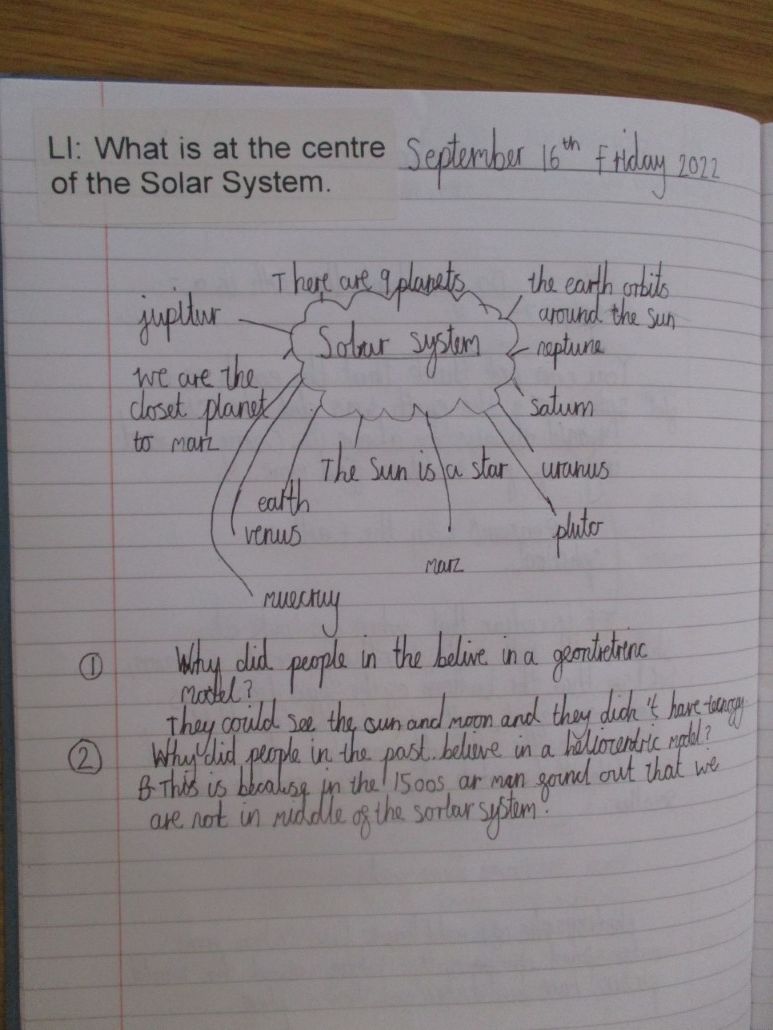 LI: What is at the centre
of the Solar System.
September 16th Friday 2022
There are 9 planets
the earth orbits
around the sun
jupitur
Solar system
neptune
we are the
closet planet
to marz
saturn
The Sun is a star
uranus
earth
venus
pluto
marz
muecruy
1 Why did people in the belive in a geontretrinc
model?
They could see the sun and moon and they didn't have
2 Why did people in the past believe in a heliocentric model?
This is because in the 1500s ar man gound out that we
are not in middle of the sorlar system.